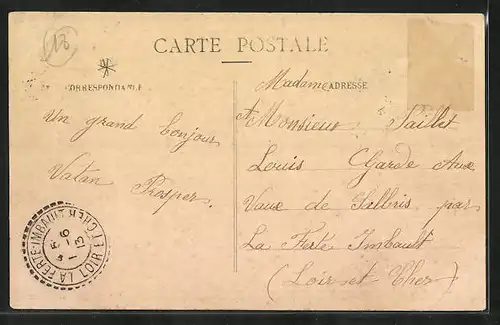 13
CARTE POSTALE
CORRESPONDANCE
ADRESSE
Un grand bonjour
Vatan Prosper
Madame
Monsieur Saillet
Louis Garde Aux
Vaux de Salbris par
La Ferté Imbault
(Loir et Cher)
LA FERTE-IMBAULT
LOIR ET CHER
1-6
13